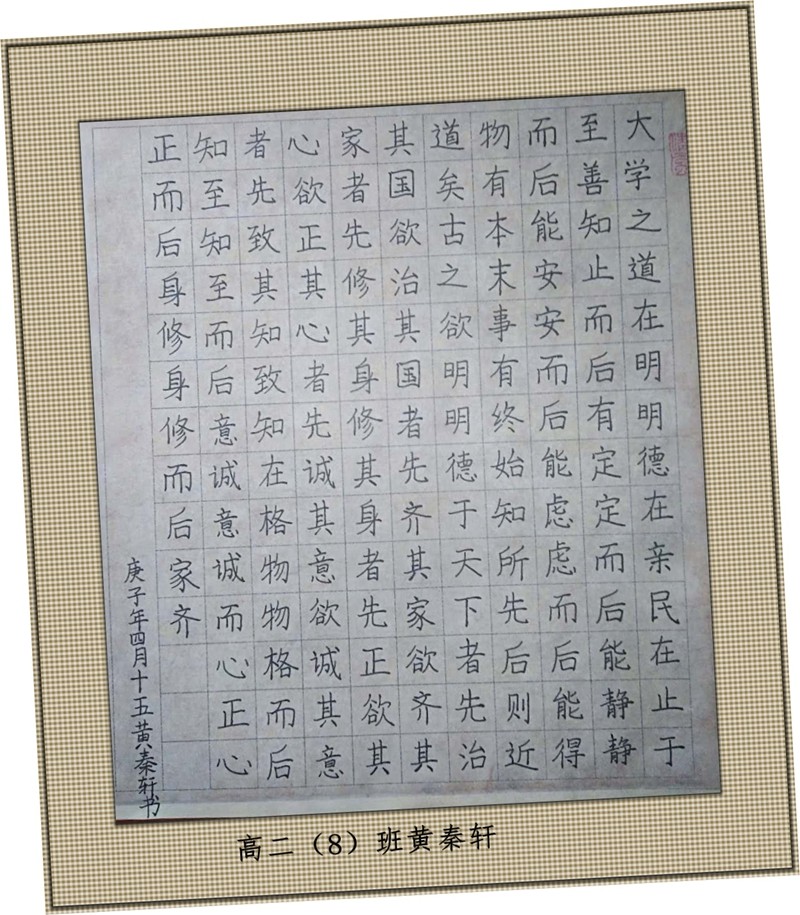 大学之道在明明德在亲民在止于
至善知止而后有定定而后能静静
而后能安安而后能虑虑而后能得
物有本末事有终始知所先后则近
道矣古之欲明明德于天下者先治
其国欲治其国者先齐其家欲齐其
家者先修其身修其身者先正欲其
心欲正其心者先诚其意欲诚其意
者先致其知致知在格物物格而后
知至知至而后意诚意诚而心正心
正而后身修身修而后家齐
庚子年四月十五黄秦轩书
高二（8）班黄秦轩